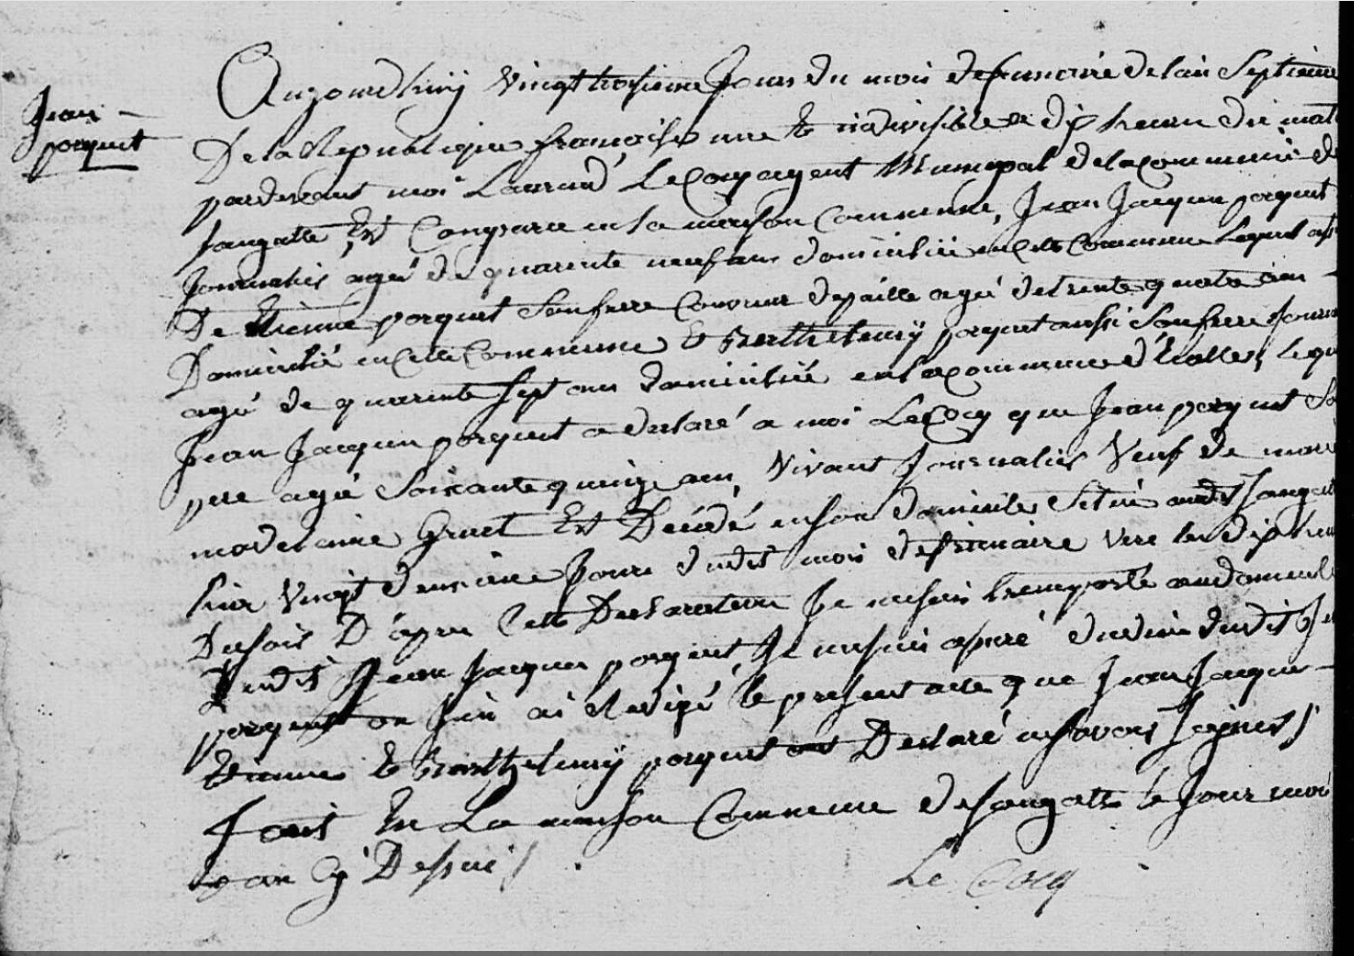 Jean
porquet
Aujourdhuij vingt troisieme Jour du mois defrimaire delan Septieme
De la Republique françoise une et indivisible a dix heures du mat
pardevant moi Laurend LeCocq agent Municipal delacommune de
Sangatte Est Comparu en la maison Commune, Jean Jacques porquet
Journalier agé de quarente neuf ans domicilié encette Commune Lequel
De Etienne porquet Son frere Couvreur depaille agé detrente quatre ans
Domicilié encette Commune et Barthelemij porquet aussi Son frere Journ
agé de quarente Sept ans domicilié en lacommune d'Ecalles, lequ
Jean Jacques porquet a declaré a moi LeCocq que Jean porquet So
pere agé Soixante quinze ans, vivant Journalier veuf de marie
madelaine Gruet Est Décédé en son domicile Situé audit Sangatt
hier vingt deuxieme Jour dudit mois defrimaire vere les dix heur
Dusoir D'apres Cette Declaration Je me suis transporté audomicile
Dudit Jean Jacques porquet, Je me suis assuré du deces dudit Je
porquet on Jen ai Redigé le present acte que Jean Jacque
Etienne et Barthelemij porquet ont Declaré nesavoir Signer
fait En La maison Commune desangatte le Jour moi
et an Cy Dessus
Le Cocq